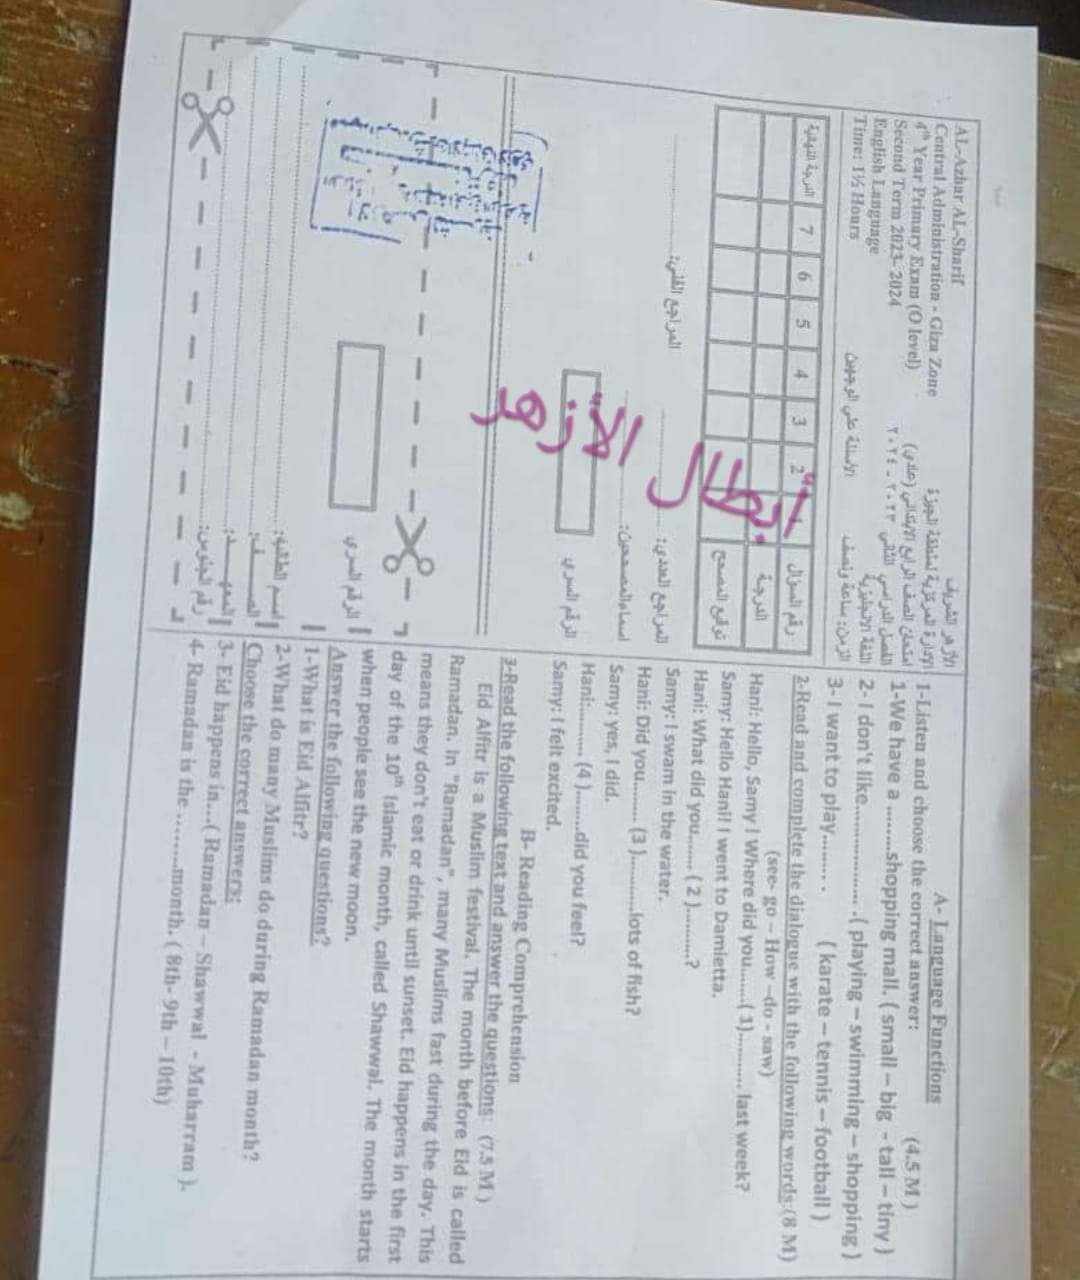 AL-Azhar AL-Sharif
Central Administration - Giza Zone
4th Year Primary Exam (O level)
Second Term 2023- 2024
English Language
Time: 1½ Hours
الأزهر الشريف
الإدارة المركزية لمنطقة الجيزة
امتحان الصف الرابع الابتدائي (عادي)
الفصل الدراسي الثاني ٢٠٢٣ - ٢٠٢٤
اللغة الانجليزية
الزمن: ساعة ونصف
الأسئلة علي الوجهين
رقم السؤال 2 3 4 5 6 7 الدرجة النهائية
الدرجة
توقيع المصحح
أبطال الأزهر
المراجع العددي:
المراجع الفني:
اسماء المصححين:
الرقم السري
الرقم السري
اسم الطالب:
الصف:
المعهد:
رقم الجلوس:
A- Language Functions
1-Listen and choose the correct answer: (4.5 M)
1-We have a .........shopping mall. ( small – big - tall – tiny )
2- I don't like................... .( playing – swimming – shopping )
3- I want to play.......... . ( karate – tennis – football )
2-Read and complete the dialogue with the following words:(8 M)
(see- go – How –do - saw)
Hani: Hello, Samy ! Where did you.......( 1)............ last week?
Samy: Hello Hani! I went to Damietta.
Hani: What did you....... ( 2 )...........?
Samy: I swam in the water.
Hani: Did you.......... (3 )............lots of fish?
Samy: yes, I did.
Hani:.......... (4 ).........did you feel?
Samy: I felt excited.
B- Reading Comprehension
3-Read the following text and answer the questions: (7.5 M )
Eid Alfitr is a Muslim festival. The month before Eid is called
Ramadan. In "Ramadan", many Muslims fast during the day. This
means they don't eat or drink until sunset. Eid happens in the first
day of the 10th Islamic month, called Shawwal. The month starts
when people see the new moon.
Answer the following questions?
1-What is Eid Alfitr?
2-What do many Muslims do during Ramadan month?
Choose the correct answers:
3- Eid happens in....( Ramadan – Shawwal - Muharram ).
4- Ramadan is the .........month. ( 8th- 9th – 10th)